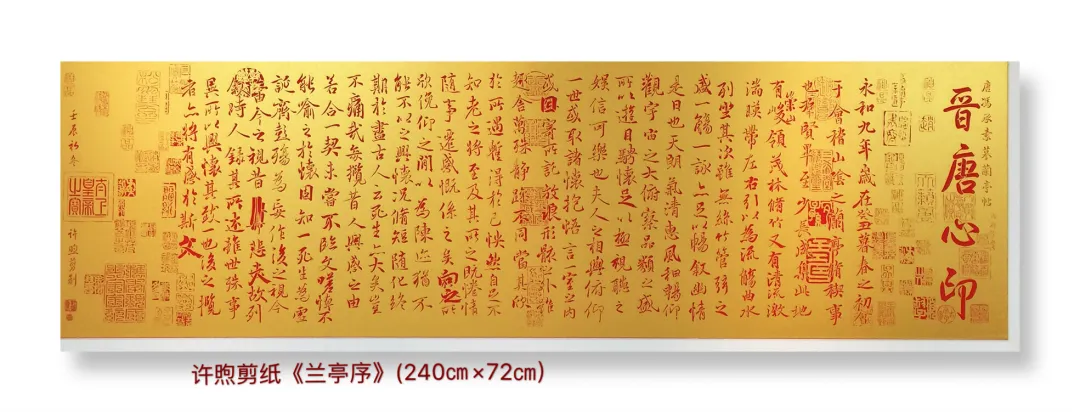 晋唐心印
唐馮承素摹蘭亭帖
永和九年歲在癸丑暮春之初會
于會稽山陰之蘭亭脩稧事
也羣賢畢至少長咸集此地
有崇山峻領茂林脩竹又有清流激
湍暎帶左右引以為流觴曲水
列坐其次雖無絲竹管弦之
盛一觴一詠亦足以暢敘幽情
是日也天朗氣清惠風和暢仰
觀宇宙之大俯察品類之盛
所以遊目騁懷足以極視聽之
娛信可樂也夫人之相與俯仰
一世或取諸懷抱悟言一室之內
或因寄所託放浪形骸之外雖
趣舍萬殊靜躁不同當其欣
於所遇暫得於己怏然自足不
知老之將至及其所之既惓情
隨事遷感慨係之矣向之所
欣俛仰之間以為陳迹猶不
能不以之興懷況脩短隨化終
期於盡古人云死生亦大矣豈
不痛哉每攬昔人興感之由
若合一契未嘗不臨文嗟悼不
能喻之於懷固知一死生為虛
誕齊彭殤為妄作後之視今
亦由今之視昔悲夫故列
敘時人錄其所述雖世殊事
異所以興懷其致一也後之攬
者亦將有感於斯文
壬辰初冬
許煦剪刻
许煦剪纸《兰亭序》(240cm×72cm)